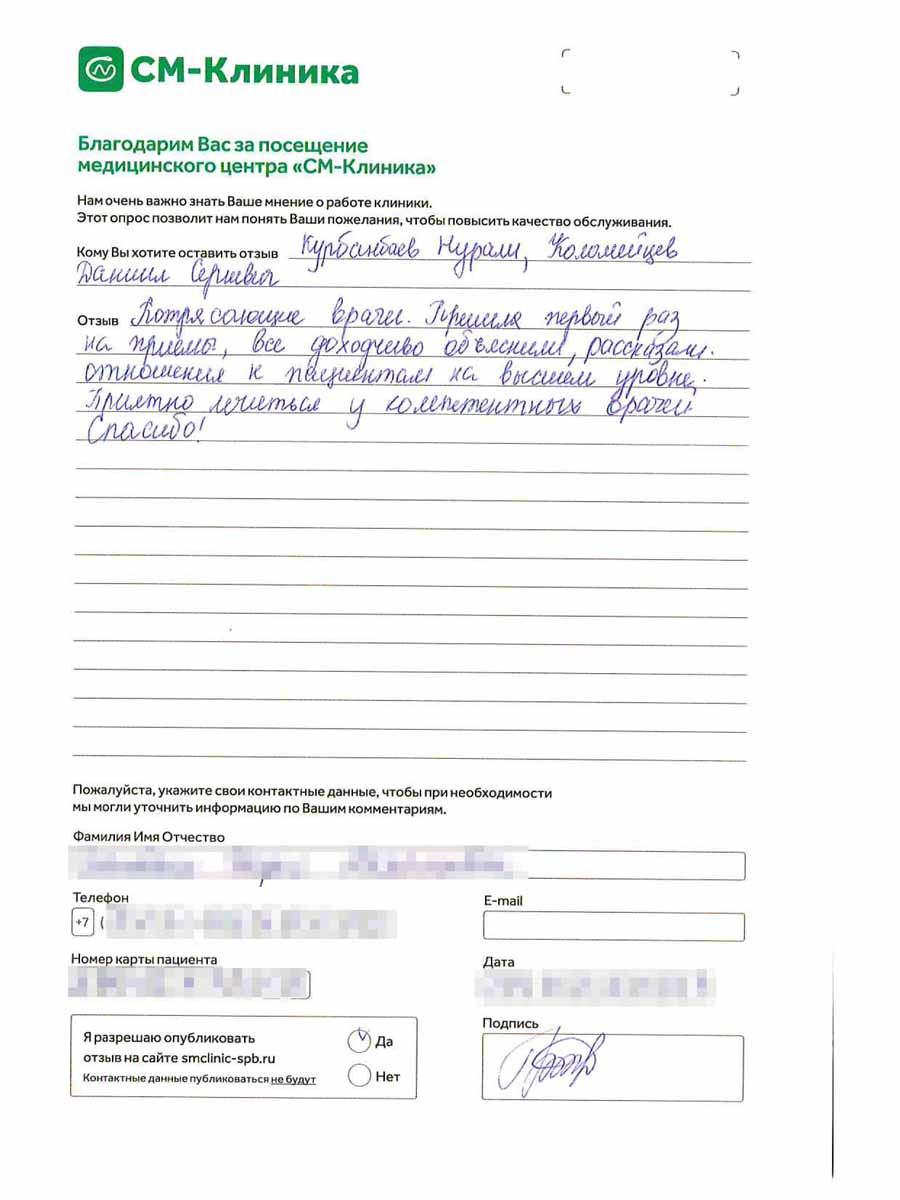 СМ-Клиника
Благодарим Вас за посещение
медицинского центра «СМ-Клиника»
Нам очень важно знать Ваше мнение о работе клиники.
Этот опрос позволит нам понять Ваши пожелания, чтобы повысить качество обслуживания.
Кому Вы хотите оставить отзыв Курбанбаев Нурали, Коломейцев
Даниил Сергеевич
Отзыв Потрясающие врачи. Пришла первый раз
на приёмы, все доходчиво объяснили, рассказали.
отношения к пациентам на высшем уровне.
Приятно лечиться у компетентных врачей.
Спасибо!
Пожалуйста, укажите свои контактные данные, чтобы при необходимости
мы могли уточнить информацию по Вашим комментариям.
Фамилия Имя Отчество
Телефон
E-mail
+7 (
Номер карты пациента
Дата
Я разрешаю опубликовать
отзыв на сайте smclinic-spb.ru
Контактные данные публиковаться не будут
Да
Нет
Подпись